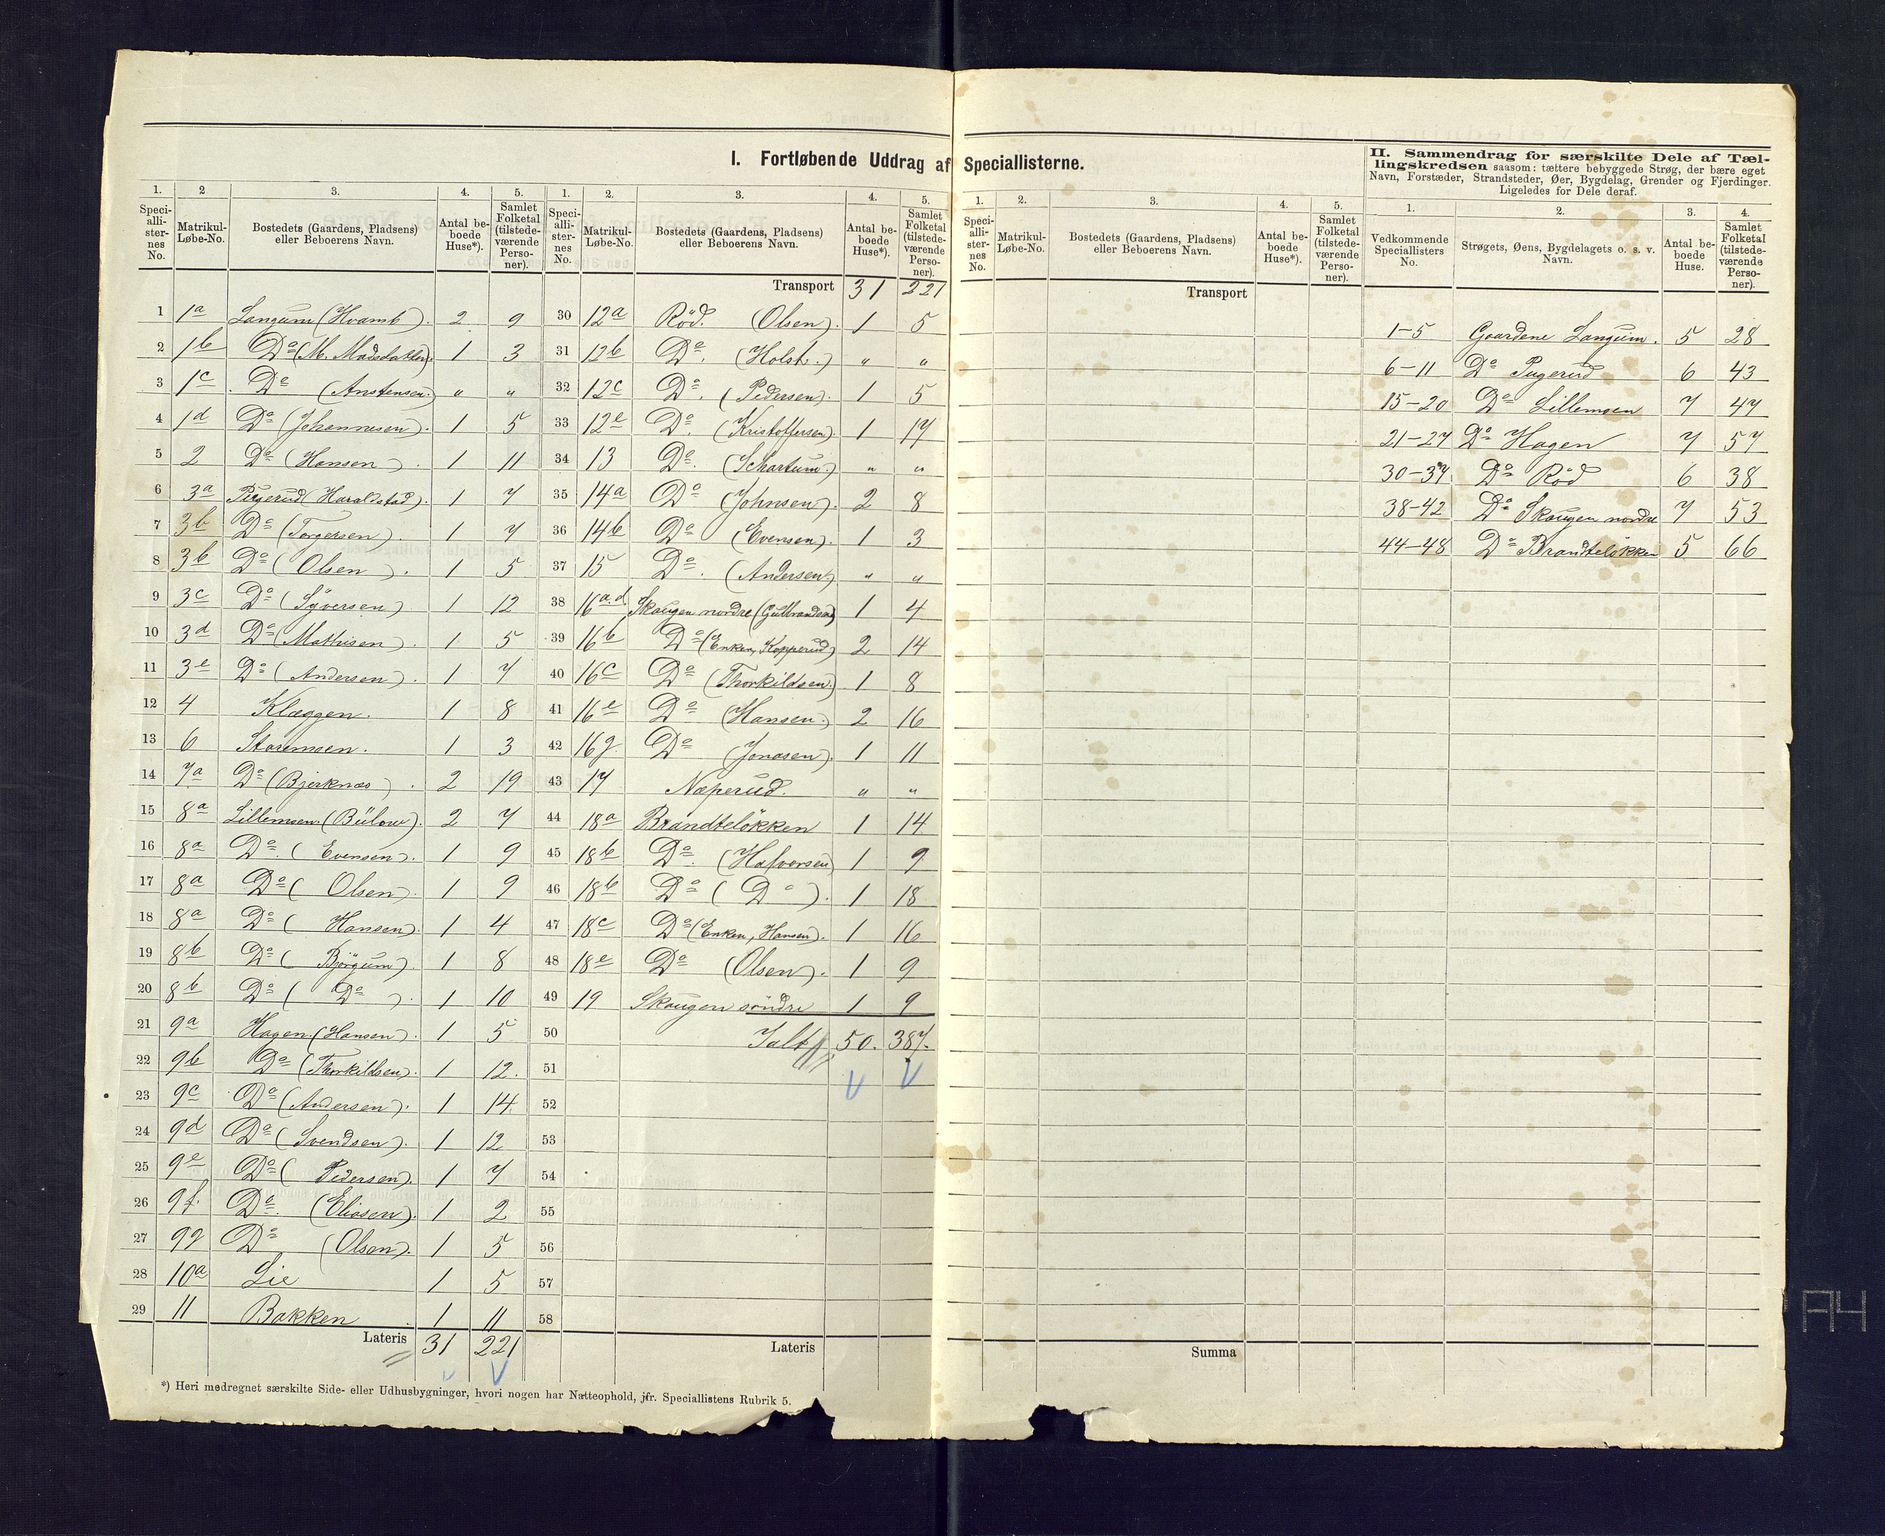 I. Fortløbende Uddrag af Speciallisterne.
1. Speciallisternes No. | 2 Matrikul-Løbe-No. | 3. Bostedets (Gaardens, Pladsens) eller Beboerens Navn. | 4. Antal beboede Huse*). | 5. Samlet Folketal (tilstedeværende Personer).
1 | 1a | Langum (Hvamb). | 2 | 9
2 | 1b | Do (M. Madsdatter). | 1 | 3
3 | 1c | Do (Anstensen.) | " | "
4 | 1d | Do (Johannesen). | 1 | 5
5 | 2 | Do (Hansen). | 1 | 11
6 | 3a | Pugerud (Haraldstad). | 1 | 7
7 | 3b | Do (Torgersen). | 1 | 7
8 | 3b | Do (Olsen). | 1 | 5
9 | 3c | Do (Syversen) | 1 | 12
10 | 3d | Do (Mathisen). | 1 | 5
11 | 3e | Do (Andersen). | 1 | 7
12 | 4 | Klæggen. | 1 | 8
13 | 6 | Storemoen. | 1 | 3
14 | 7a | Do (Bjerknæs). | 2 | 19
15 | 8a | Lillemoen. (Bülow). | 2 | 7
16 | 8a | Do. (Evensen). | 1 | 9
17 | 8a | Do (Olsen). | 1 | 9
18 | 8a | Do (Hansen). | 1 | 4
19 | 8b | Do (Björgum). | 1 | 8
20 | 8b | Do (Do) | 1 | 10
21 | 9a | Hagen. (Hansen). | 1 | 5
22 | 9b | Do (Thorkildsen). | 1 | 12.
23 | 9c | Do (Andersen). | 1 | 14
24 | 9d | Do (Svendsen). | 1 | 12
25 | 9e | Do (Pedersen). | 1 | 7
26 | 9f. | Do. (Eliasen). | 1 | 2
27 | 9g | Do (Olsen). | 1 | 5
28 | 10a | Lie | 1 | 5
29 | 11 | Bakken | 1 | 11
Lateris | 31 | 221
*) Heri medregnet særskilte Side- eller Udhusbygninger, hvori nogen har Natteophold, jfr. Speciallistens Rubrik 5.
1. Speciallisternes No. | 2. Matrikul-Løbe-No. | 3. Bostedets (Gaardens, Pladsens) eller Beboerens Navn. | 4. Antal beboede Huse*). | 5. Samlet Folketal (tilstedeværende Personer).
Transport | 31 | 221
30 | 12a | Röd. (Olsen). | 1 | 5
31 | 12b | Do. (Holst.) | " | "
32 | 12c | Do. (Pedersen). | 1 | 5
33 | 12e | Do. (Kristoffersen). | 1 | 17
34 | 13 | Do. (Schartum.) | " | "
35 | 14a | Do (Johnsen) | 2 | 8
36 | 14b | Do (Evensen). | 1 | 3
37 | 15 | Do. (Andersen) | " | "
38 | 16a.d | Skaugen nordre (Gulbrandsen) | 1 | 4
39 | 16b | Do (Enken, Kopperud) | 2 | 14
40 | 16c | Do (Thorkildsen). | 1 | 8
41 | 16e | Do (Hansen.) | 2 | 16
42 | 16g. | Do (Jonasen). | 1 | 11
43 | 17 | Næperud. | " | "
44 | 18a | Brandtelökken | 1 | 14
45 | 18b | Do. (Halvorsen) | 1 | 9
46 | 18b | Do (Do). | 1 | 18
47 | 18c | Do (Enken, Hansen). | 1 | 16
48 | 18e | Do (Olsen). | 1 | 9
49 | 19 | Skaugen söndre | 1 | 9
50 | Ialt | 50. | 387.
51
52
53
54
55
56
57
58
Lateris
1. Speciallisternes No. | 2. Matrikul-Løbe-No. | 3. Bostedets (Gaardens, Pladsens) eller Beboerens Navn. | 4. Antal beboede Huse*). | 5. Samlet Folketal (tilstedeværende Personer).
Transport
II. Sammendrag for særskilte Dele af Tællingskredsen saasom: tættere bebyggede Strøg, der bære eget Navn, Forstæder, Strandsteder, Øer, Bygdelag, Grender og Fjerdinger. Ligeledes for Dele deraf.
1. Vedkommende Speciallisters No. | 2. Strøgets, Øens, Bygdelagets o. s. v. Navn. | 3. Antal beboede Huse. | 4. Samlet Folketal (tilstedeværende Personer).
1-5 | Gaardene Langum. | 5 | 28
6-11 | Do Pugerud | 6 | 43
15-20 | Do Lillemoen | 7 | 47
21-27 | Do Hagen | 7 | 57
30-37 | Do Röd | 6 | 38
38-42 | Do Skaugen nordre | 7 | 53
44-48 | Do Brandtelökken | 5 | 66
Summa
A4